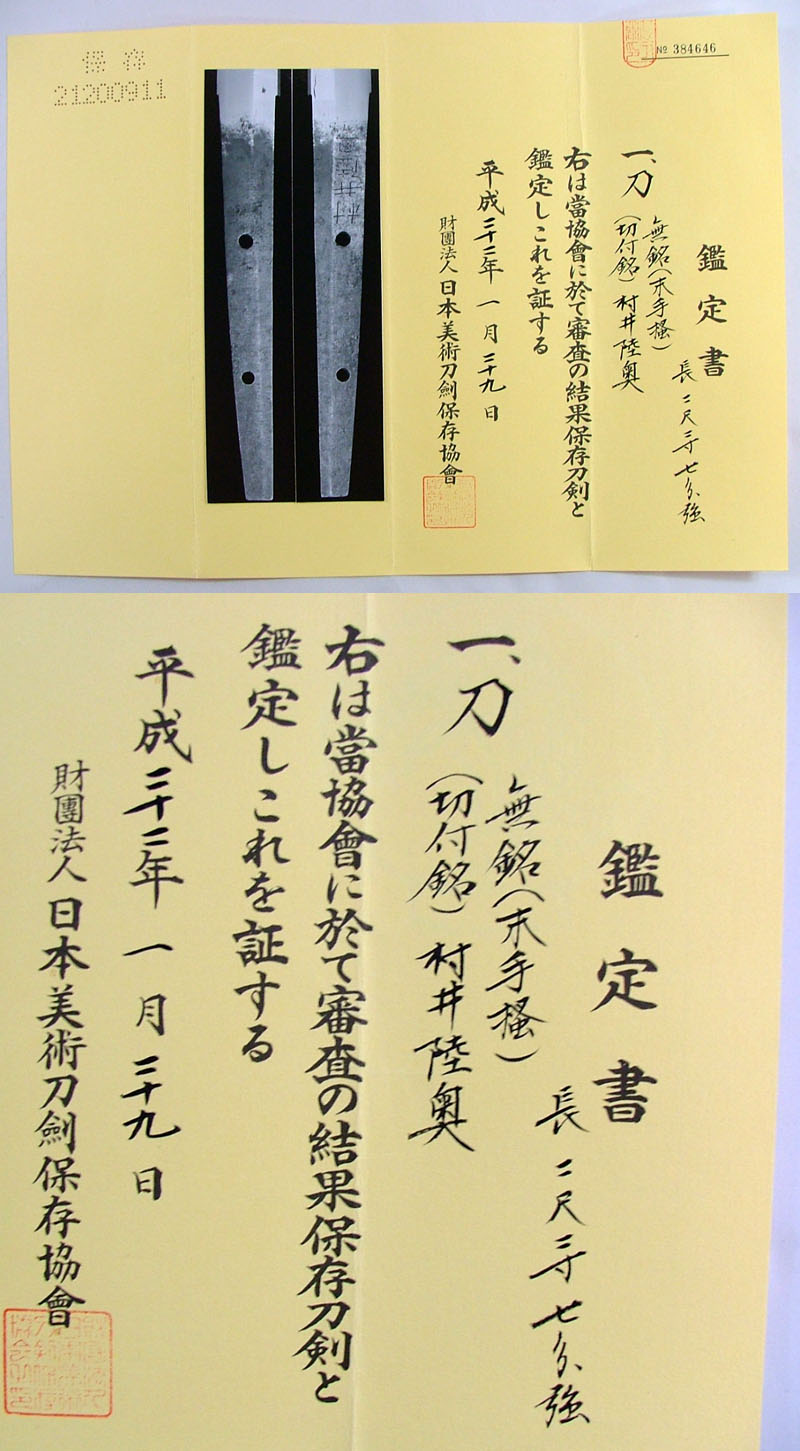 № 384646
鑑定書
長二尺二寸七分強
一、刀
無銘(末手掻)
(切付銘)村井陸奥
右は當協會に於て審査の結果保存刀剣と
鑑定しこれを証する
平成二十二年一月二十九日
財團法人日本美術刀劍保存協會
保存
21200911
鑑定書
長二尺二寸七分強
一、刀
無銘(末手掻)
(切付銘)村井陸奥
右は當協會に於て審査の結果保存刀剣と
鑑定しこれを証する
平成二十二年一月二十九日
財團法人日本美術刀劍保存協會